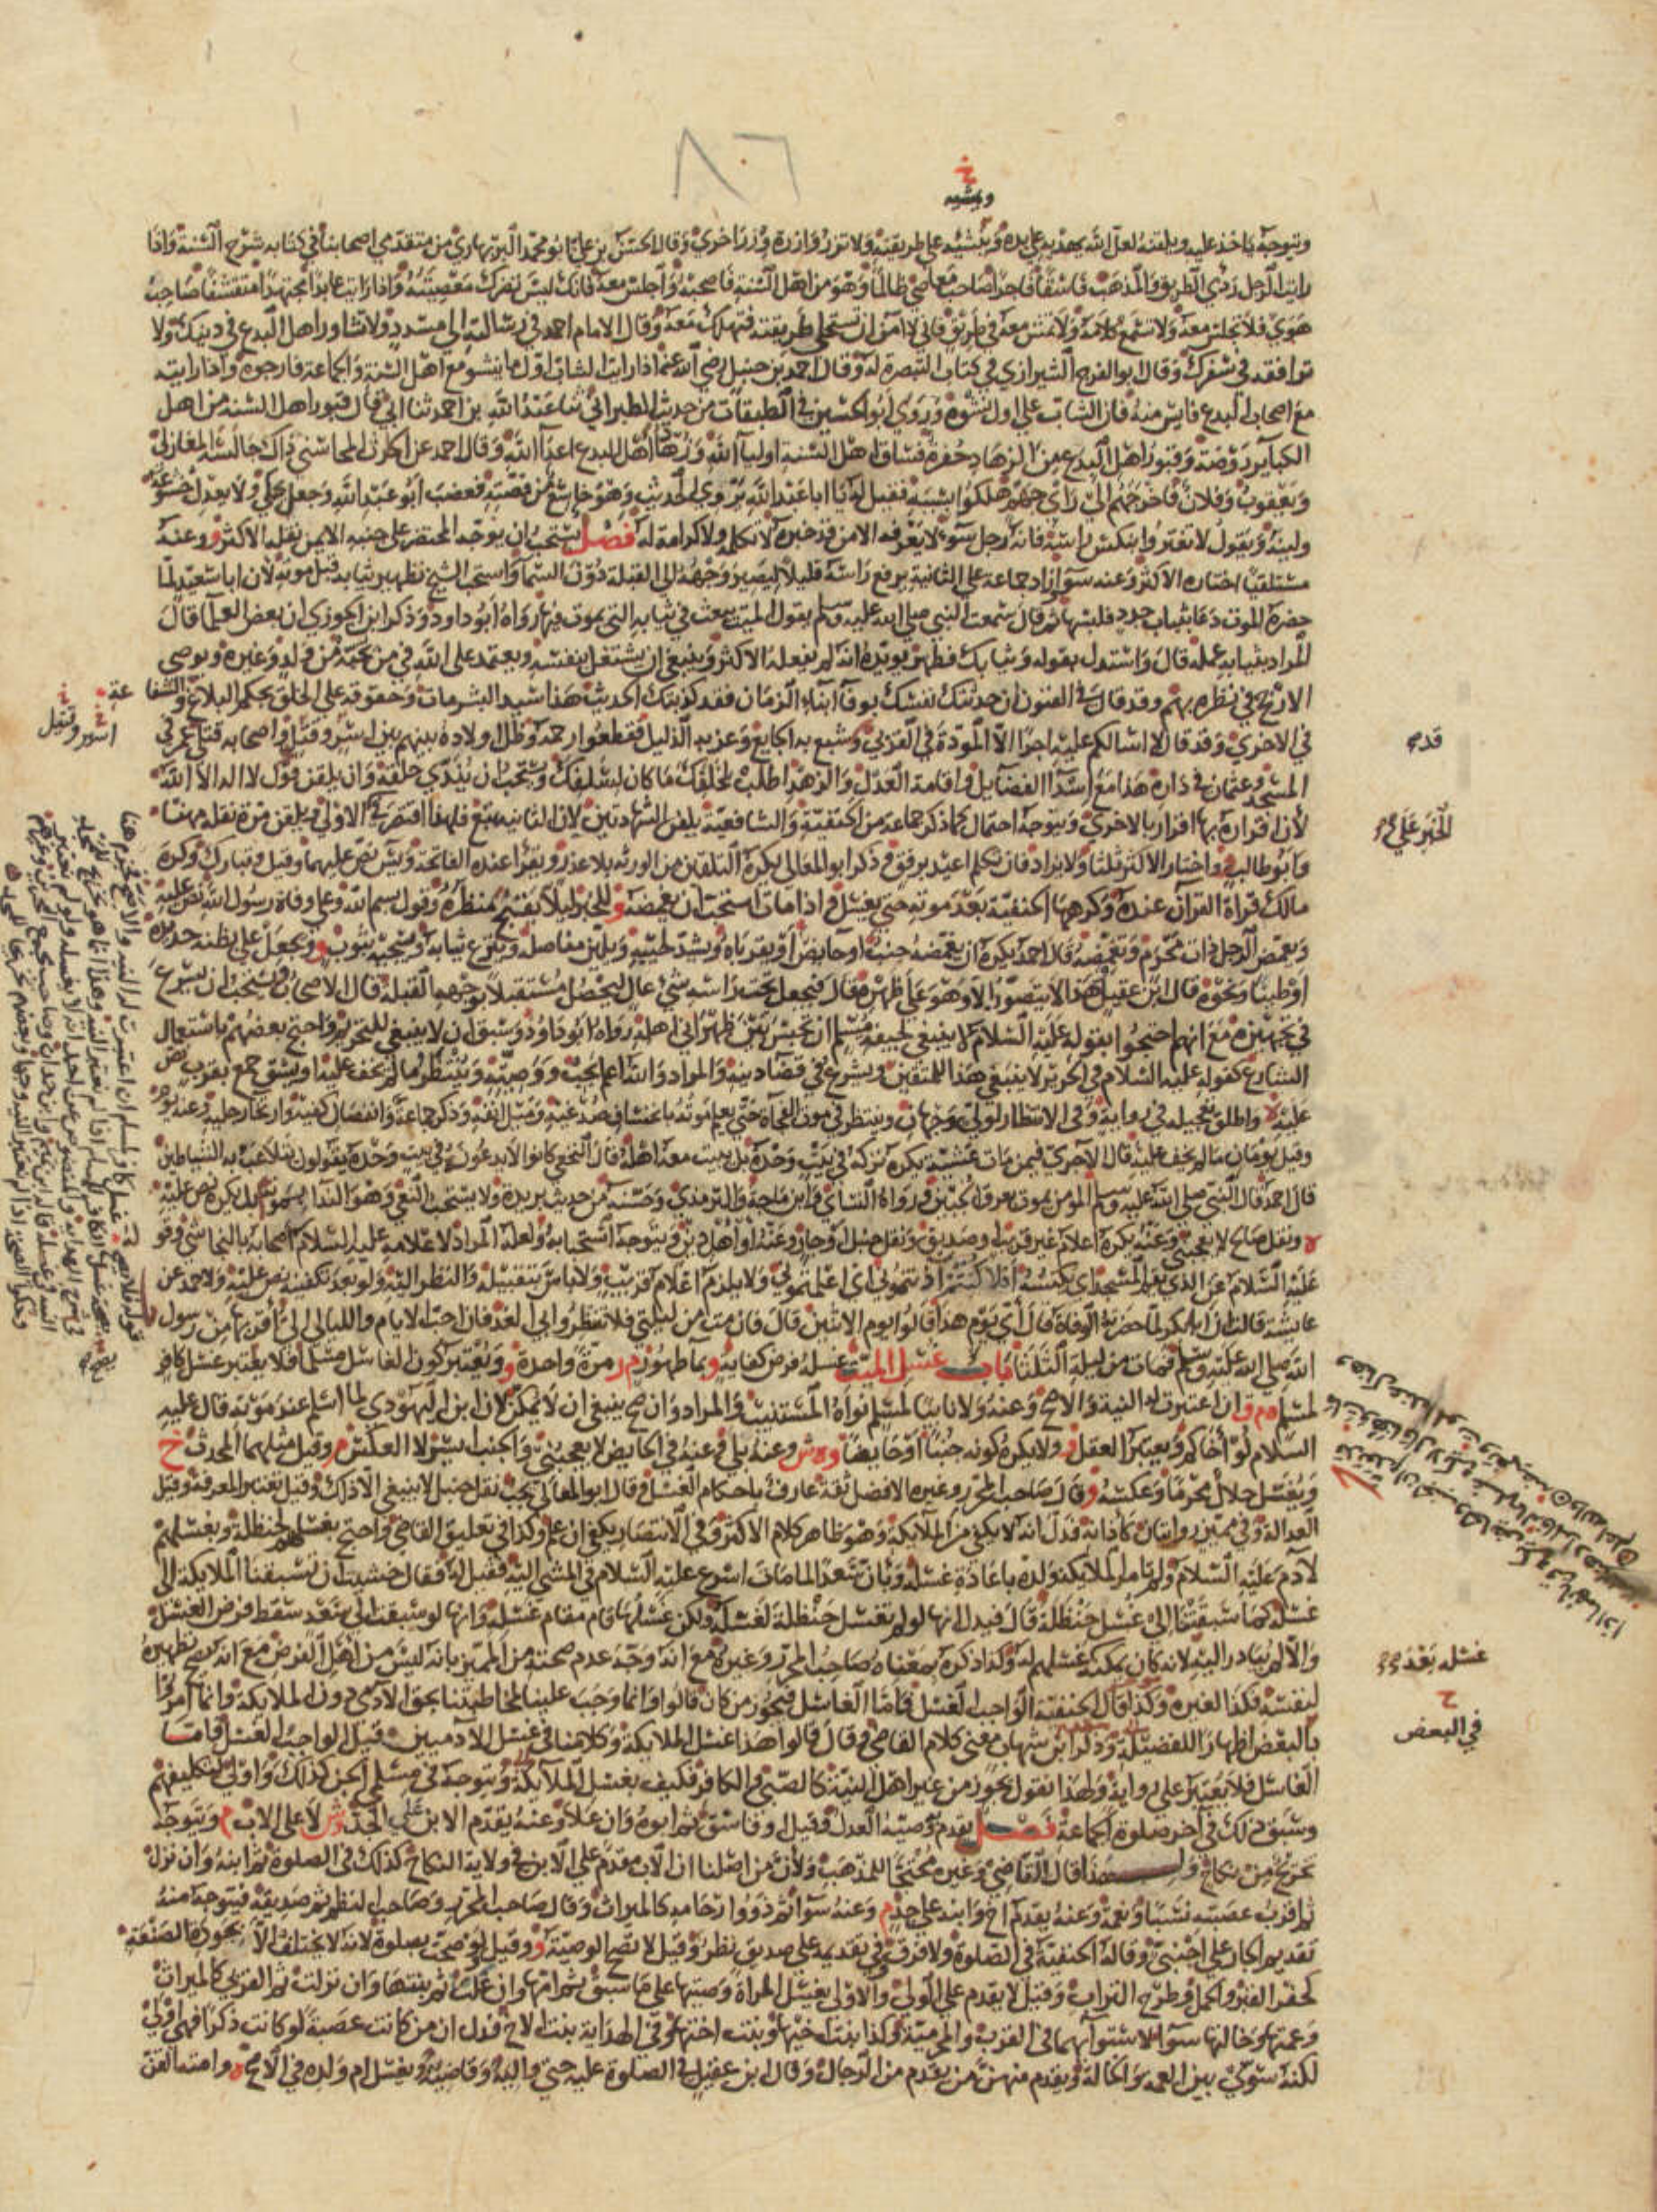 ٨٦
خ
ويشيه
ويتوجه ياخذ عليه ويلقنه لعل الله يهديه علي يده ويشيه علي طريقته ولا تزر وازرة وزر اخري وقال الحسن بن علي ابو محمد البربهاري من متقدمي اصحابنا في كتابه شرح السنة واذا
رايت الرجل ردي الطريق والمذهب فاسقا فاجرا صاحب معاصي ظالما وهو من اهل السنة فاصحبه واجلس معه فانك ليس تضرك معصيته واذا رايت عابدا مجتهدا متقشفا صاحب
هوي فلا تجلس معه ولا تسمع كلامه ولا تمش معه في طريق فاني لا امن ان تستحلي طريقته فتهلك معه وقال الامام احمد في رسالته الي مسدد ولا تشاور اهل البدع في دينك ولا
ترافقه في سفرك وقال ابو الفرج الشيرازي في كتاب التبصرة له وقال احمد بن حنبل رضي الله عنه اذا رايت الشاب اول ما ينشو مع اهل السنة والجماعة فارجوه واذا رايته
مع اصحاب البدع فايس منه فان الشاب علي اول نشوه وروي ابو الحسين في الطبقات من حديث الطبراني ثنا عبد الله بن احمد ثنا ابي قال قبور اهل السنة من اهل
الكباير روضة وقبور اهل البدع من الزهاد حفرة فساق اهل السنة اوليا الله وزهاد اهل البدع اعدا الله وقال احمد عن الحارث المحاسبي ذاك جالسه المغازلي
ويعقوب وفلان فاخرجهم الي راي جهم هلكوا بسببه فقيل له يا ابا عبد الله يروي الحديث وهو خاشع من قصته فغضب ابو عبد الله وجعل يحكي ولا يعدل خشوعه
ولينه ويقول لا تغتروا بنكس راسه فانه رجل سوء لا يعرفه الا من قد خبره لا تكلمه ولا كرامة له فصل يستحب ان يوجه المحتضر علي جنبه الايمن نقله الاكثر و وعنه
مستلقيا اختاره الاكثر وعنه سوا زاد جماعة علي الثانية يرفع راسه قليلا ليصير وجهه الي القبلة دون السما واستحب الشيخ تطهير ثيابه قبل موته لان ابا سعيد لما
حضره الموت دعا بثياب جدد فلبسها ثم قال سمعت النبي صلي الله عليه وسلم يقول الميت يبعث في ثيابه التي يموت فيها رواه ابو داود وذكر ابن الجوزي ان بعض العلما قال
المراد بثيابه عمله قال واستدل بقوله وثيابك فطهر يويده انه لم يفعله الاكثر وينبغي ان يشتغل بنفسه ويعتمد علي الله في من يحبه من ولد وغيره ويوصي
الارجح في نظره بهم وقد قال في الفنون ان حدثتك نفسك بوفا ابناء الزمان فقد كذبتك الحديث هذا سيد البشر مات وحقوقه علي الخلق بحكم البلاغ والشفاعة
في الاخري وقد قال لا اسالكم عليه اجرا الا المودة في القربي وشبع به الجايع وعز به الذليل فقطعوا رحمه وظل اولاده بينهم بين اسير وقتيل واصحابه قتلي عمر في
المسجد وعثمان في داره هذا مع اسدا الفضايل واقامة العدل والزهد اطلب لخلفك ما كان لسلفك ويستحب ان يندي حلقه وان يلقن قول لا اله الا الله
لان اقراره بها اقرار بالاخري ويتوجه احتمال كما ذكر جماعة من الحنفية والشافعية يلقن الشهادتين لان الثانية تبع فلهذا اقتصر في الاولي ويلقن مرة نقله مهنا
وابو طالب واختار الاكثر ثلاثا ولا يزاد فان تكلم اعيد برفق وذكر ابو المعالي يكره التلقين من الورثه بلا عذر ويقرا عنده الفاتحة ويس نص عليهما وقيل وتبارك وكره
مالك قراة القرآن عنده وكرهها الحنفية بعد موته حتي يغسل واذا مات استحب ان يغمضه و للخبر ليلا يقبح منظره وقول بسم الله وعلي وفاة رسول الله نص عليه
ويغمض الرجل ذات محرم وتغمضه قال احمد يكره ان يغمضه جنب او حايض او يقرباه ويشد لحييه ويلين مفاصله ويخلع ثيابه ويسجيه بثوب و ويجعل علي بطنه حديدة
او طينا ونحوه قال ابن عقيل هذا لا يتصور الا وهو علي ظهره قال فيجعل تحت راسه شي عال ليحصل مستقبلا بوجهه القبلة قال الاصحاب ويستحب ان يسرع
في تجهيزه مع انهم احتجوا بقوله عليه السلام لا ينبغي لجيفة مسلم ان تحبس بين ظهراني اهله رواه ابو داود وسبق ان لا ينبغي للتحريم واحتج بعضهم باستعمال
الشارع كقوله عليه السلام في الحرير لا ينبغي هذا للمتقين ويسرع في قضا دينه والمراد والله اعلم يجب ووصيته وينتظر ما لم يخف عليه او يشق جمع بقرب نص
عليه واطلق تعجيله في رواية وفي الانتظار لولي وجهان وينتظر في موت الفجاة حتي يعلم موته بانخساف صدغيه وميل انفه وذكر جماعة وانفصال كفيه وارتخا رجليه وعنه يوم
وقيل يومان ما لم يخف عليه قال الاجري فيمن مات عشية يكره تركه في بيت وحده بل يبيت معه اهله قال النخعي كانوا لا يدعونه في بيت وحده يقولون يتلاعب به الشياطين
قال احمد قال النبي صلي الله عليه وسلم المومن يموت بعرق الجبين ورواه النسائي وابن ماجة والترمذي وحسنه من حديث بريدة ولا يستحب النعي وهو الندا بموته بل يكره نص عليه
ه ونقل صالح لا يعجبني وعنه يكره اعلام غير قريب او صديق ونقل حنبل او جار وعنه او اهل دين ويتوجه استحبابه ولعله المراد لاعلامه عليه السلام اصحابه بالنجاشي وقوله
عليه السلام عن الذي يقم المسجد اي يكنسه افلا كنتم اذنتموني اي اعلمتموني ولا يلزم اعلام قريب ولا باس بتقبيله والنظر اليه ولو بعد تكفينه نص عليه ولاحمد عن
عايشة قالت ان ابا بكر لما حضرته الوفاة قال اي يوم هذا قالوا يوم الاثنين قال فان مت من ليلتي فلا تنتظروا بي الغد فان احب الايام والليالي الي اقربها من رسول
الله صلي الله عليه وسلم فمات من ليلة الثلثا باب غسل الميت غسله فرض كفاية و بما طهور م ر مرة واحدة و ويعتبر كون الغاسل مسلما فلا يعتبر غسل كافر
لمسلم و م ق ان اعتبرت له النية والاصح وعنه ولا نايبا لمسلم نواه المستنيب والمراد وان صح ينبغي ان لا يمكن لان ابن اليهودي لما اسلم عند موته قال عليه
السلام لوا اخاكم ويعتبر العقل و ولا يكره كونه جنبا او حايضا و ه ش وعنه بلي وعنه في الحايض لا يعجبني والجنب ايسر لا العكس م وقيل مثلهما المحدث خ
ويغسل حلال محرما وعكسه و قال صاحب المحرر وغيره الافضل ثقة عارف باحكام الغسل وقال ابو المعالي يجب نقل حنبل لا ينبغي الا ذلك وقيل تعتبر المعرفة وقيل
العدالة وفي مميز روايتان كاذانه فدل انه لا يكفي من الملايكة وهو ظاهر كلام الاكثر وفي الانتصار يكفي ان علم وكذا في تعليق القاضي واحتج بغسلهم لحنظلة وبغسلهم
لآدم عليه السلام ولم تامر الملايكة ولده باعادة غسله وبان سعدا لما مات اسرع عليه السلام في المشي اليه فقيل له فقال خشيت ان تسبقنا الملايكة الي
غسله كما سبقتنا الي غسل حنظلة قال فيدل انها لو لم تغسل حنظلة لغسله ولكن غسلها قام مقام غسله وانها لو سبقت الي سعد سقط فرض الغسل
والا لم يبادر اليه لانه كان يمكنه غسلهم له وكذا ذكره بمعناه صاحب المحرر وغيره مع انه وجه عدم صحته من المميز بانه ليس من اهل الفرض مع انه يصح تطهيره
لنفسه فكذا لغيره وكذا قال الحنفية الواجب الغسل فاما الغاسل فيجوز من كان قالوا وانما وجب علينا لمخاطبتنا بحق الآدمي دون الملايكة وانما امروا
بالبعض اظهارا للفضيلة وذكر ابن شهاب معني كلام القاضي وقال قالوا هذا غسل الملايكة وكلامنا في غسل الآدميين قيل الواجب الغسل فاما
الغاسل فلا يعتبر علي رواية ولهذا نقول يجوز من غير اهل النية كالصبي والكافر فكيف بغسل الملايكة ويتوجه في مسلمي الجن كذلك واولي لتكليفهم
وسبق ذلك في آخر صلوة الجماعة فصل يقدم وصيه العدل وقيل او فاسق ثم ابوه وان علا وعنه يقدم الابن علي الجد وش لا علي الاب م ويتوجه
تخريج من نكاح ولهذا قال القاضي وغيره محتجا للمذهب ولان من اصلنا ان الاب مقدم علي الابن في ولاية النكاح كذلك في الصلوة ثم ابنه وان نزل
ثم اقرب عصبته نسبا ونعمة وعنه يقدم اخ وابنه علي جد م وعنه سوا ثم ذووا ارحامه كالميراث وقال صاحب المحرر وصاحب النظم ثم صديقه فيتوجه منه
تقديم الجار علي اجنبي وقاله الحنفية في الصلوة ولا فرق وفي تقديمه علي صديق نظر وقيل لا تصح الوصية و وقيل لو صحت بصلوة لانه لا يختلف الا بجودة الصنعة
كحفر القبر والحمل وطرح التراب وقيل لا يقدم علي الولي والاولي بغسل المراة وصيتها علي ما سبق ثم امها وان علت ثم بنتها وان نزلت ثم القربي كالميراث
وعمتها وخالتها سوا لاستوائهما في القرب والمحرمية وكذا بنت اخيها وبنت اختها وفي الهداية بنت الاخ فدل ان من كانت عصبة لو كانت ذكرا فهي اولي
لكنه سوي بين العمة والخالة ويقدم منهن من يقدم من الرجال وقال ابن عقيل في الصلوة عليه حتي واليه وقاضيه ويغسل ام ولده في الاصح ه وامته القن
خ
اسير وقتيل
قدم
الخبر علي
غسله بعد
ح
في البعض